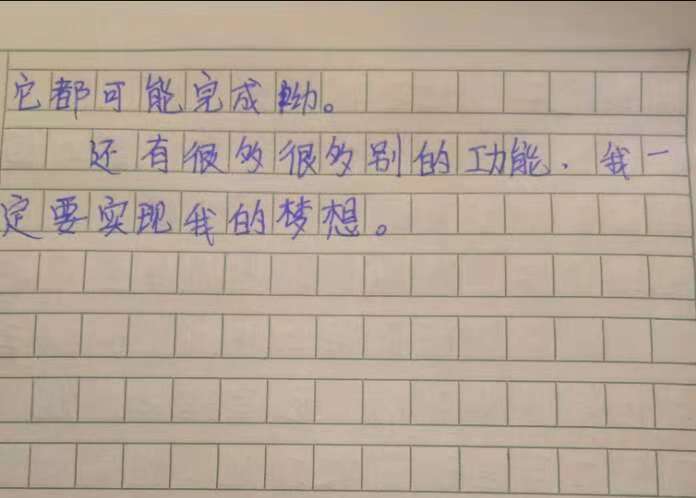 它都可能完成呦。
还有很多很多别的功能、我一
定要实现我的梦想。